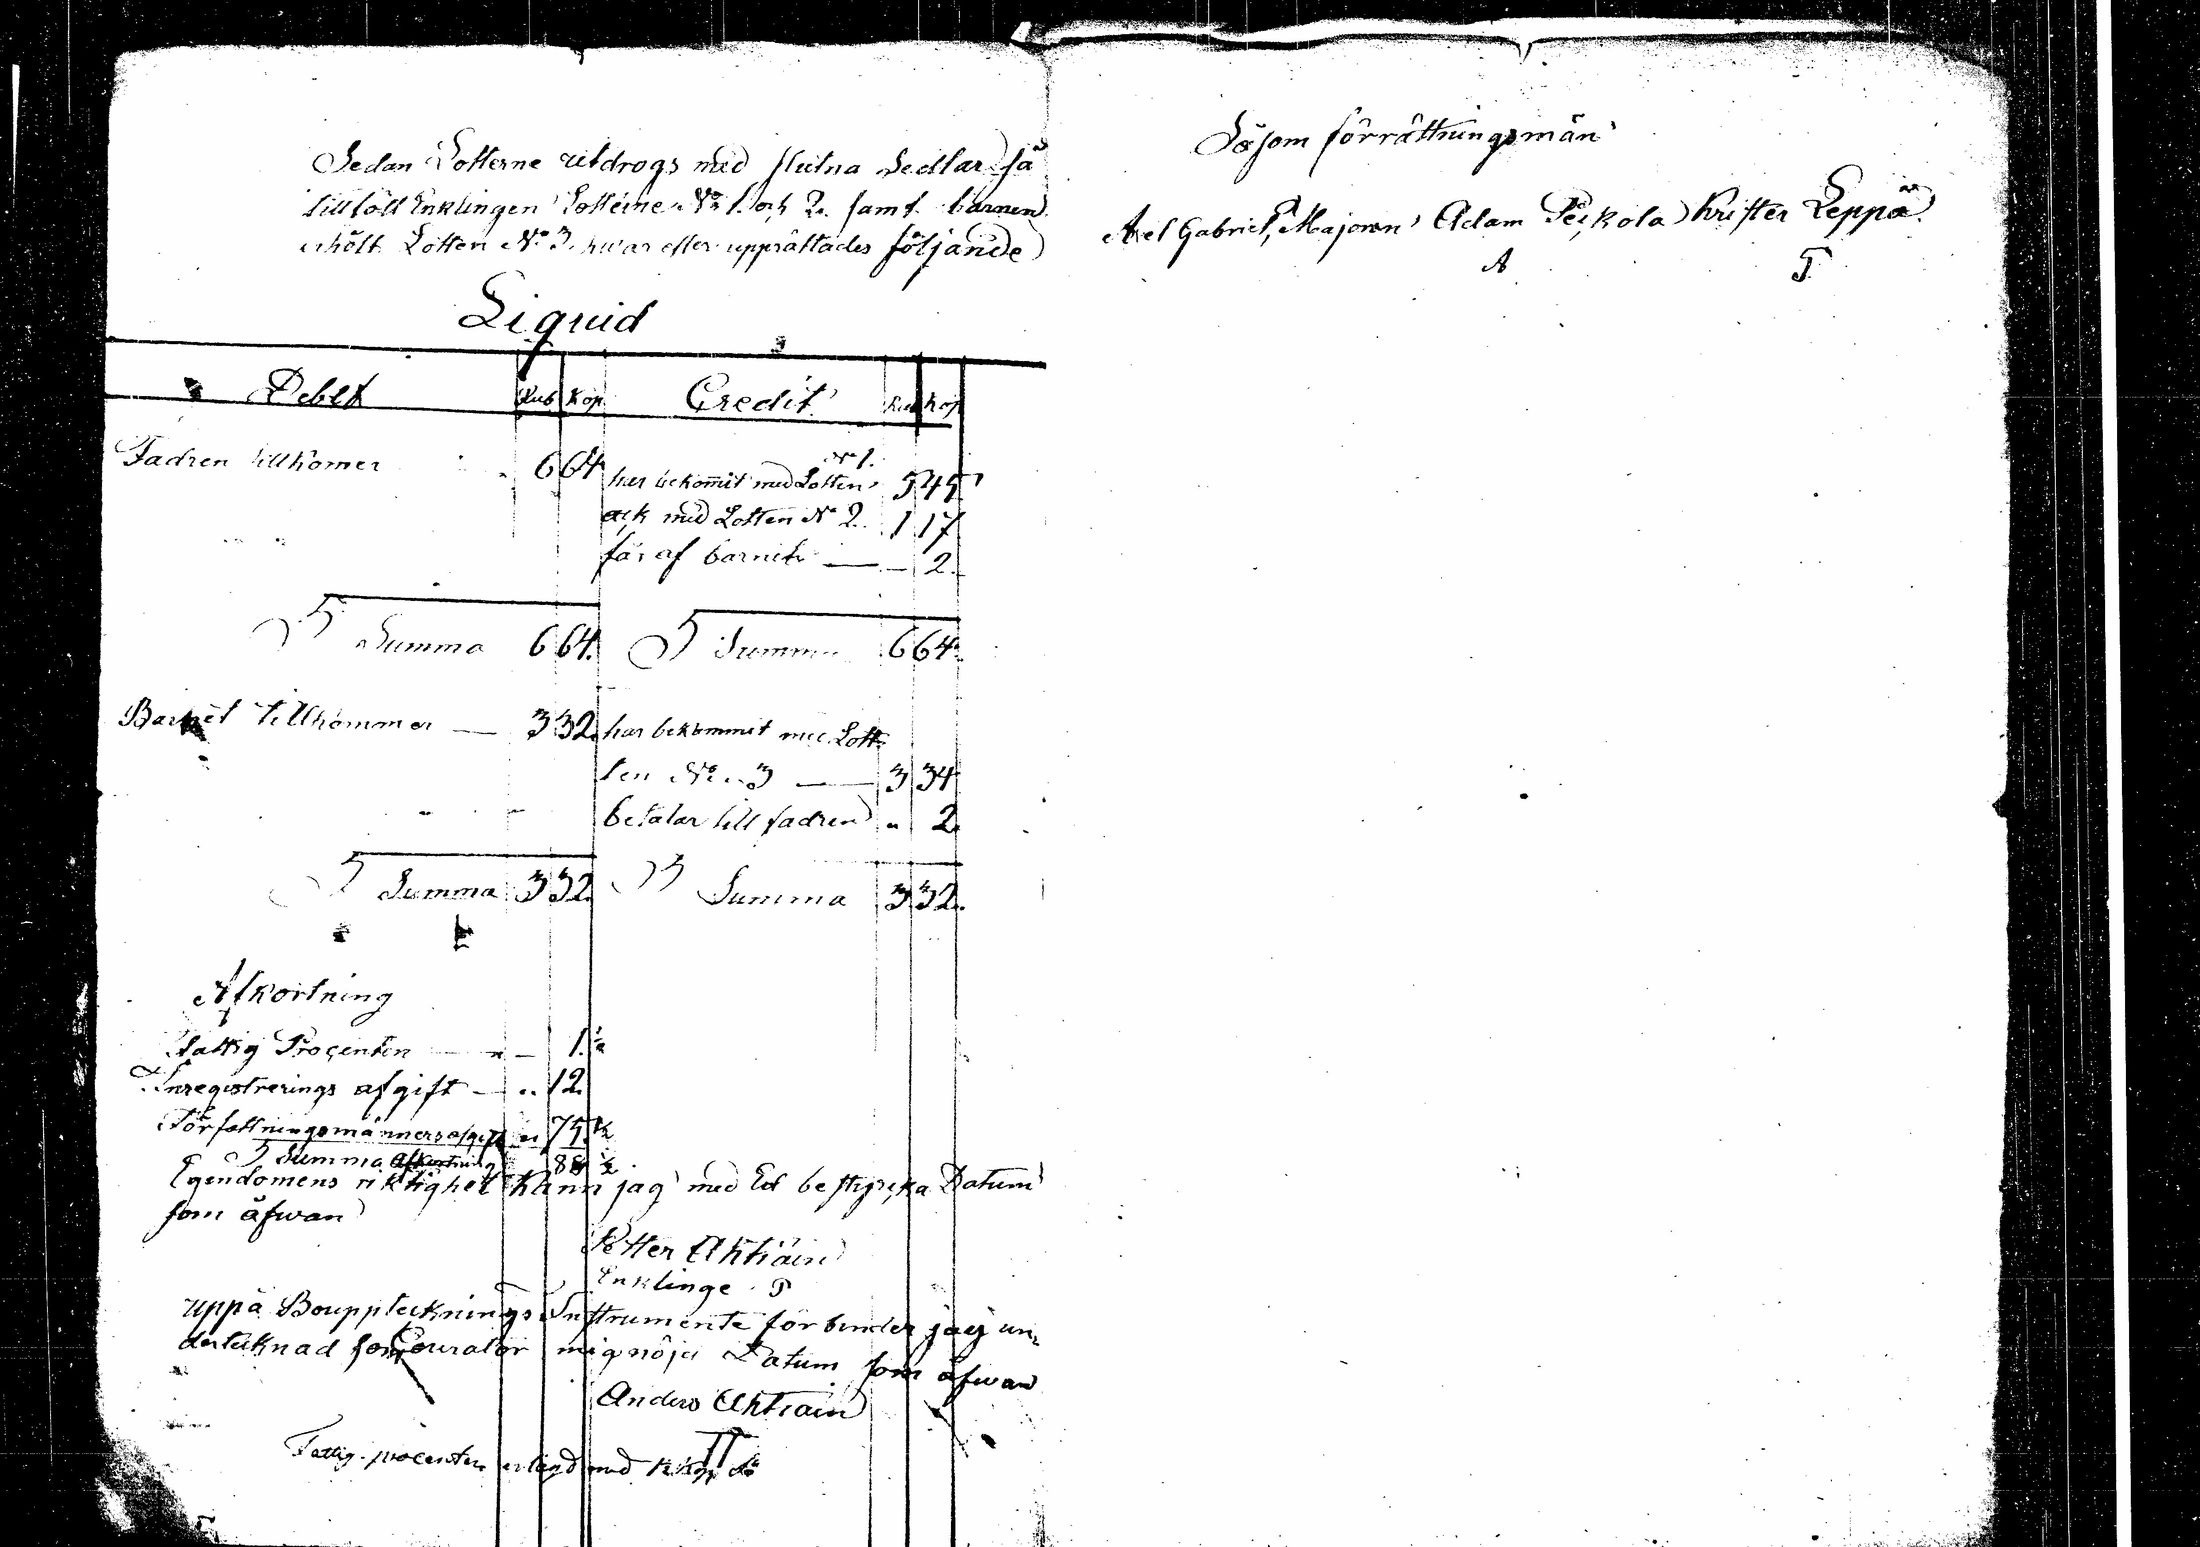 Sedan Lotterne utdrogs med slutna Sedlar så
tillföll Enklingen Lotterne No 1. och 2. samt barnen
erhölt Lotten No 3. hvar efter upprättades följande
Liquid
Debet Rub Kop Credit Rub Kop
Fadren tillkomer 6 64 har bekomit med Lotten No 1. 5 45
ock med Lotten No 2. 1 17
får af barnet — — 2.
Summa 6 64. Summa 6 64.
Barnet tillkommer — 3 32. har bekommit med Lott-
ten No 3 — 3 34
betalar till fadren " 2.
Summa 3 32. Summa 3 32.
Afkortning
Fattig Procenten — " — 1. ½
Inregistrerings afgift — " 12.
Förrättningsmänners afgift " 75. ½
Summa Afkortning 88 ½
Egendomens riktighet kann jag med Ed bestyrcka Datum
som äfwan
Petter Ahtiain
Enklinge
uppå Bouppteknings Instrumente förbinder jag un-
derteknad som Courator mig nöja Datum som äfwan
Anders Ahtiain
Fattig-procenten erlagd med
Såsom förrättningsmän
Axel Gabriel, Majoren Adam Peckola Krister Leppä
A